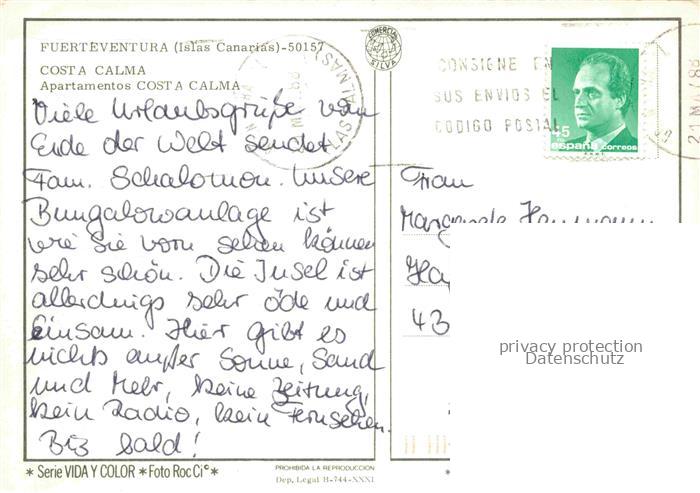 FUERTEVENTURA (Islas Canarias)-50157
COSTA CALMA
Apartamentos COSTA CALMA
Viele Urlaubsgrüße vom
Ende der Welt sendet
Fam. Schalomon. Unsere
Bungalowanlage ist
wie Sie vorn sehen können
sehr schön. Die Insel ist
allerdings sehr öde und
einsam. Hier gibt es
nichts außer Sonne, Sand
und Mehr, keine Zeitung,
kein Radio, kein Fernsehen.
Bis bald!
* Serie VIDA Y COLOR * Foto Roc Ci©*
COMERCIAL
SILVA
PROHIBIDA LA REPRODUCCION
Dep. Legal B-744-XXXI
CONSIGNE EN
SUS ENVIOS EL
CODIGO POSTAL
45
españa correos
Frau
43
privacy protection
Datenschutz